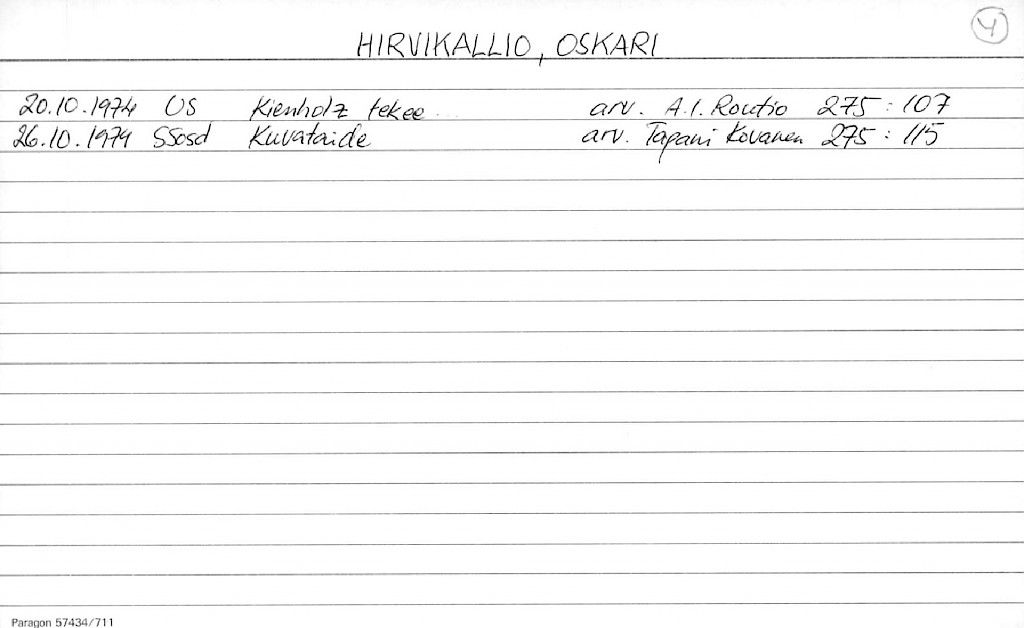 4
HIRVIKALLIO, OSKARI
20.10.1974 US Kienholz tekee... arv. A.I. Routio 275:107
26.10.1974 SSosd Kuvataide arv. Tapani Kovanen 275:115
Paragon 57434/711